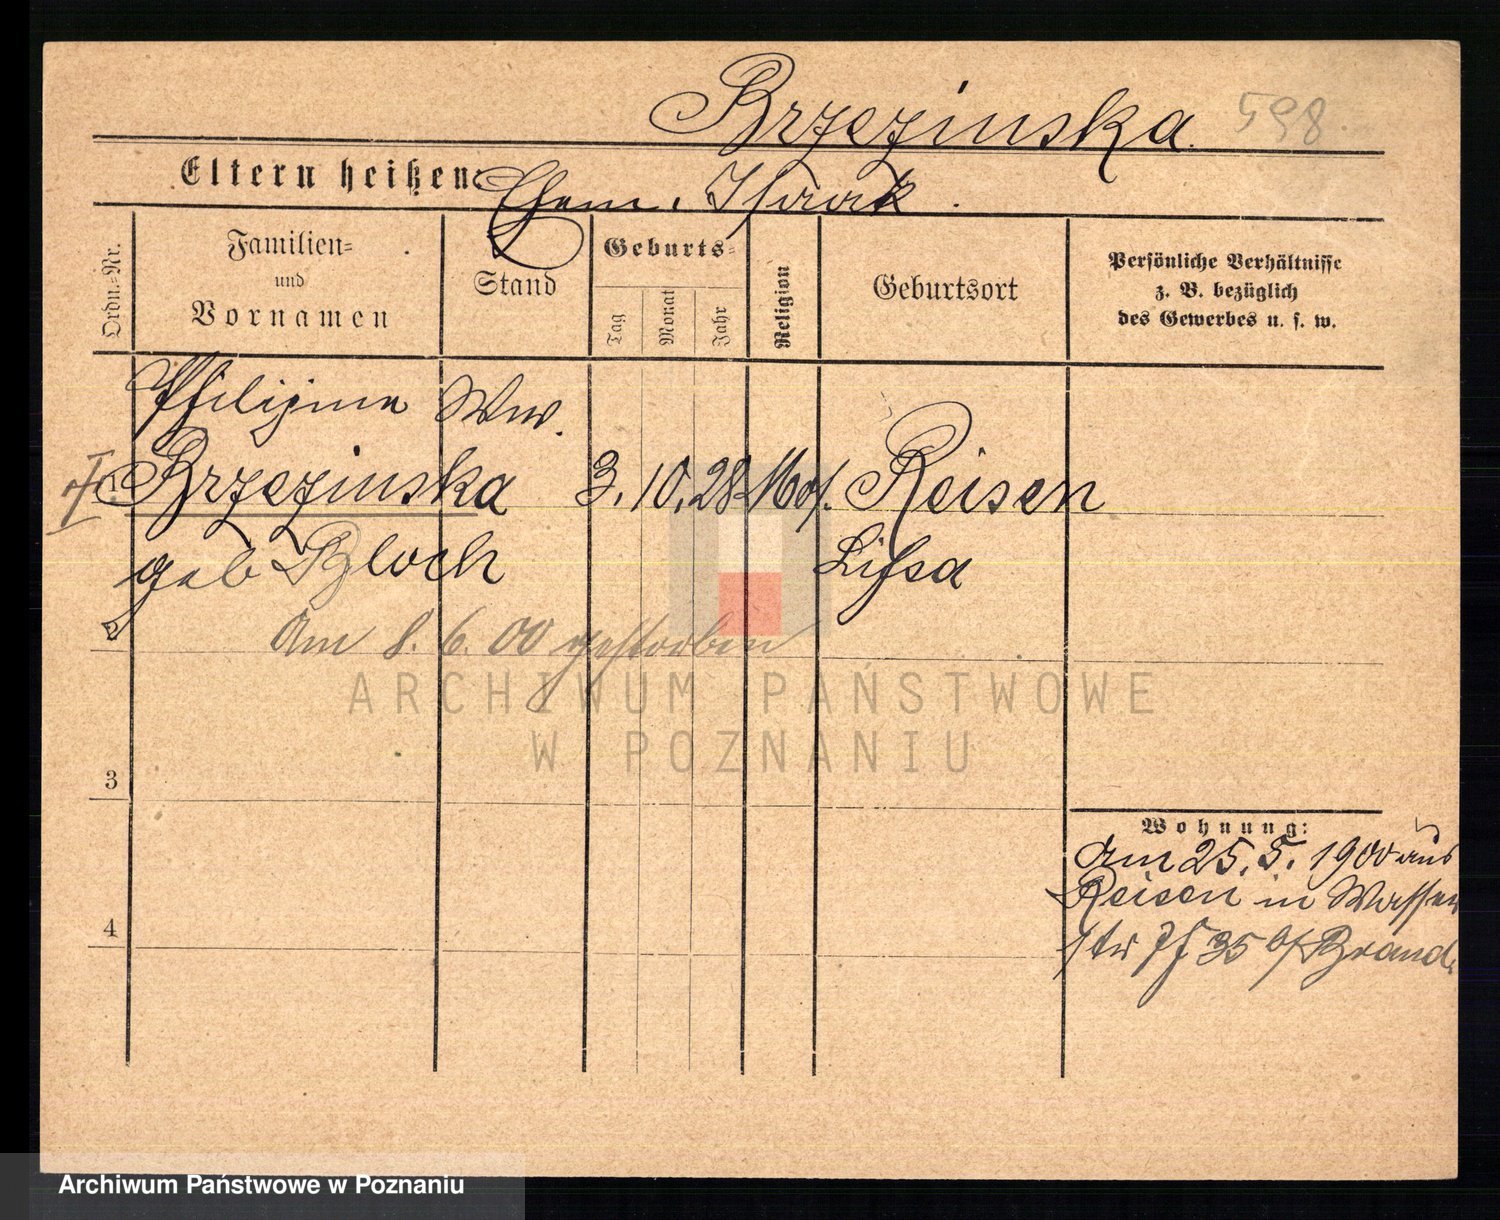 Brzezinska. 598.
Eltern heißen: Ehem. Isaak.
Ordn.-Nr.
Familien-
und
Vornamen
Stand
Geburts-
Tag
Monat
Jahr
Religion
Geburtsort
Persönliche Verhältnisse
z. B. bezüglich
des Gewerbes u. s. w.
Philipine Ww.
1 Brzezinska 3. 10. 28 Mos. Reisen
geb Bloch Lissa
2
Am 8. 6. 00 gestorben
3
4
Wohnung:
Am 25. 5. 1900 aus
Reisen in Wasser
str 35 b/ Brand.
ARCHIWUM PAŃSTWOWE
W POZNANIU
Archiwum Państwowe w Poznaniu